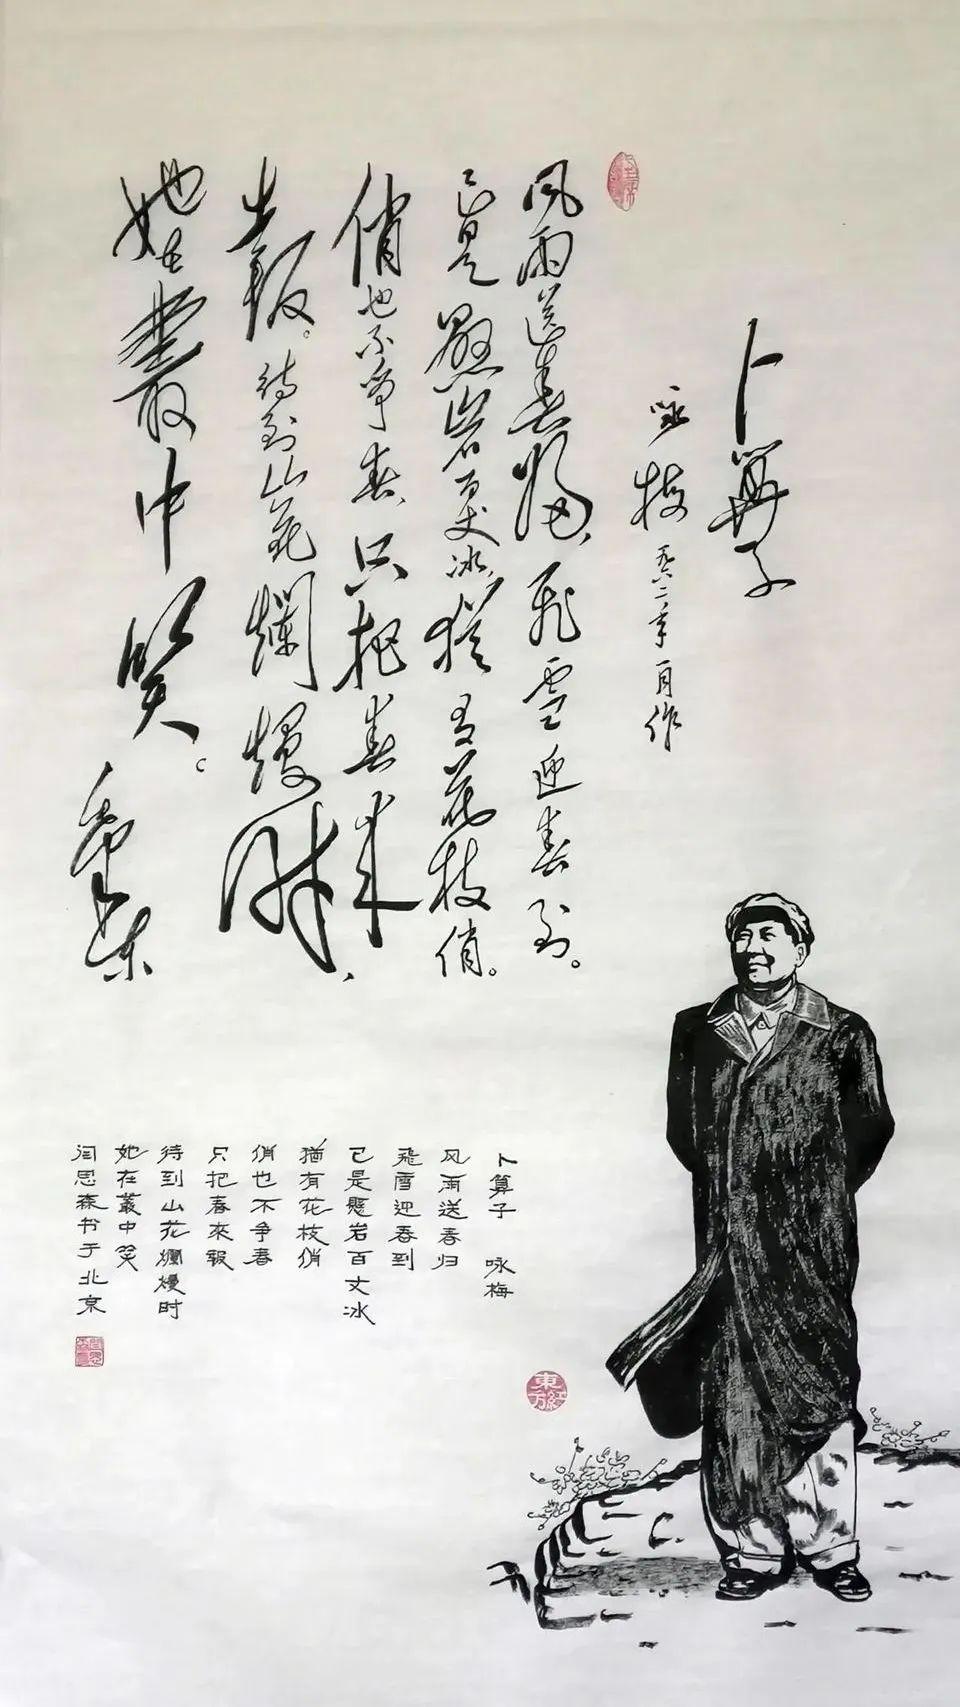 卜算子
咏梅 一九六二年一月作
风雨送春归,飞雪迎春到。
已是懸岩百丈冰,犹有花枝俏。
俏也不争春,只把春来
报。待到山花爛熳时,
她在叢中笑。
毛泽东
卜算子 咏梅
风雨送春归
飛雪迎春到
已是懸岩百丈冰
猶有花枝俏
俏也不争春
只把春來報
待到山花爛熳时
她在叢中笑
闫思森书于北京
東方紅